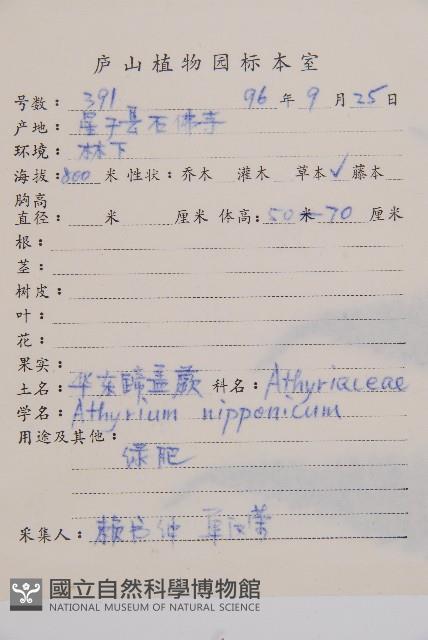 庐山植物园标本室
号数: 391 96年9月25日
产地: 星子县石佛寺
环境: 林下
海拔: 800米 性状: 乔木 灌木 草本✓藤本
胸高
直径: 米 厘米 体高: 50米-70 厘米
根:
茎:
树皮:
叶:
花:
果实:
土名: 华东蹄盖蕨 科名: Athyriaceae
学名: Athyrium nipponicum
用途及其他:
绿肥
采集人: 赖书绅
國立自然科學博物館
NATIONAL MUSEUM OF NATURAL SCIENCE